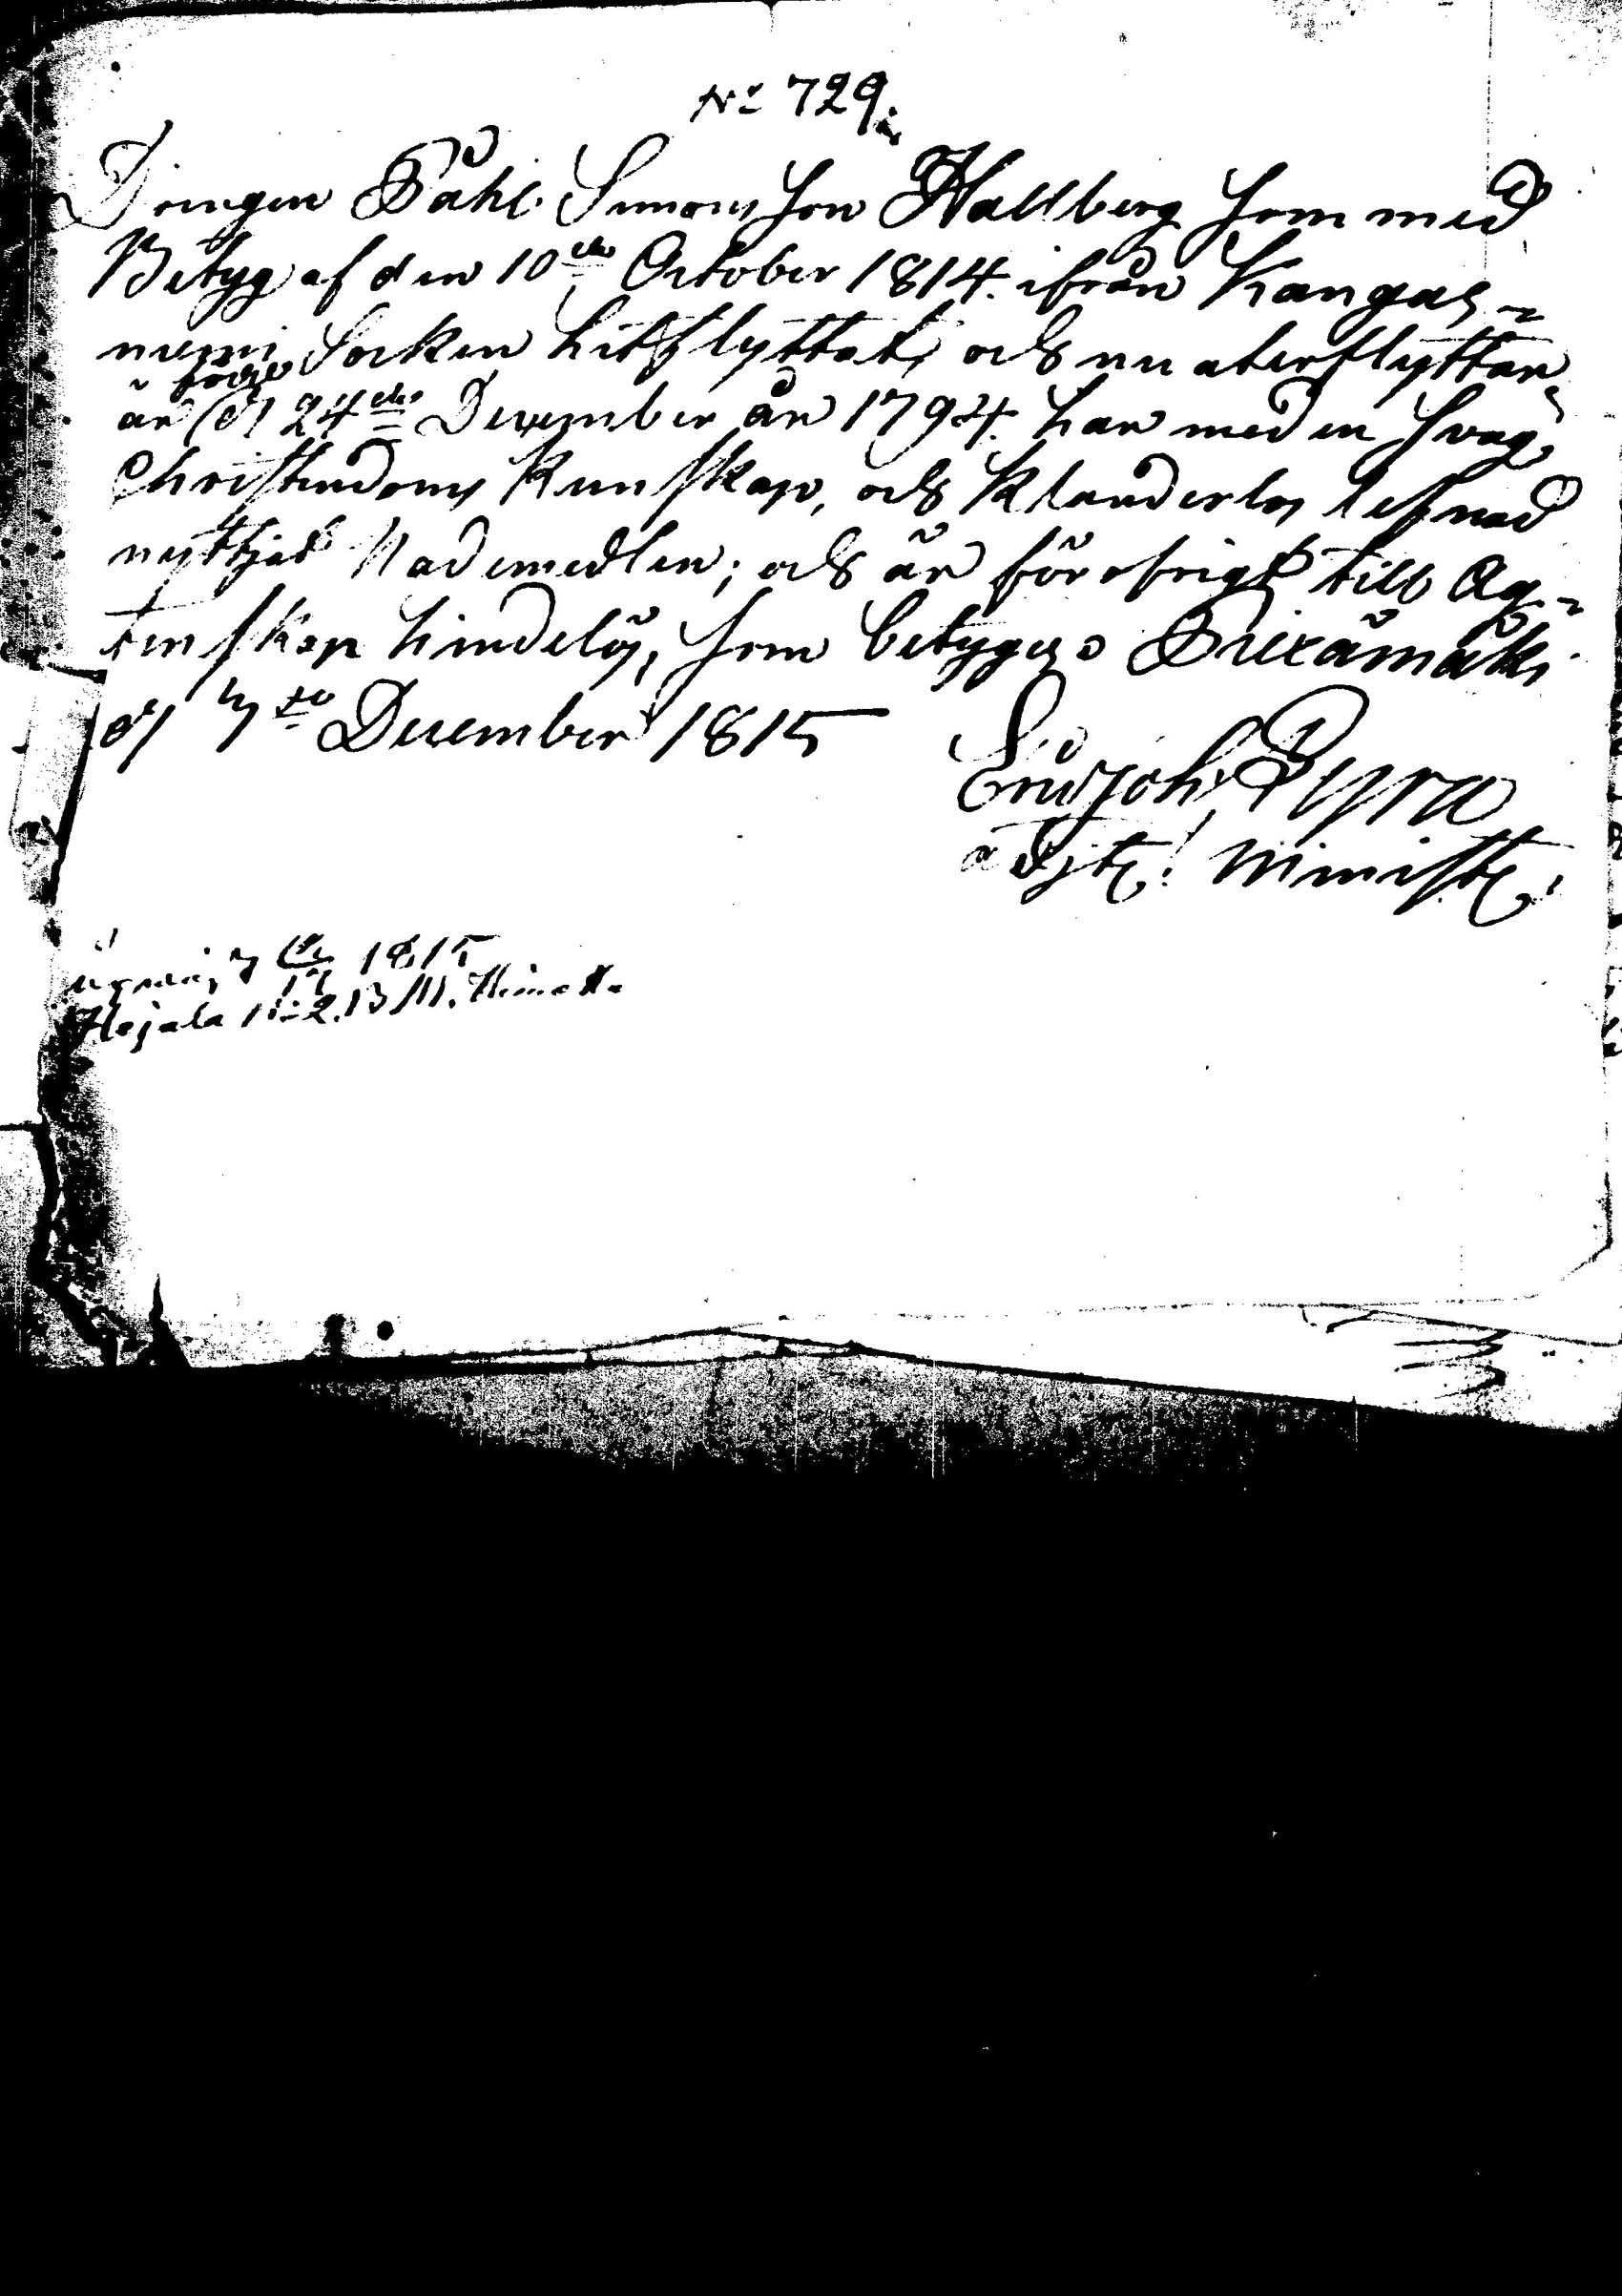 No 729.
Drengen Påhl Simonsson Hallberg som med
Betyg af den 10de October 1814. ifrån Kangas=
niemi Socken hitflyttat, och nu återflyttar,
är född d/ 24de December år 1794. har med en svag
Christendoms Kunskap, och Klanderlös lefnad
nyttjat Nademedlen; och är för öfrigt till Äg=
tenskap hindelös, som betygas Piexämäki
d/ 7de December 1815
Joh. Pyra
adjt! Minist!
1815
Hojala No 2. B